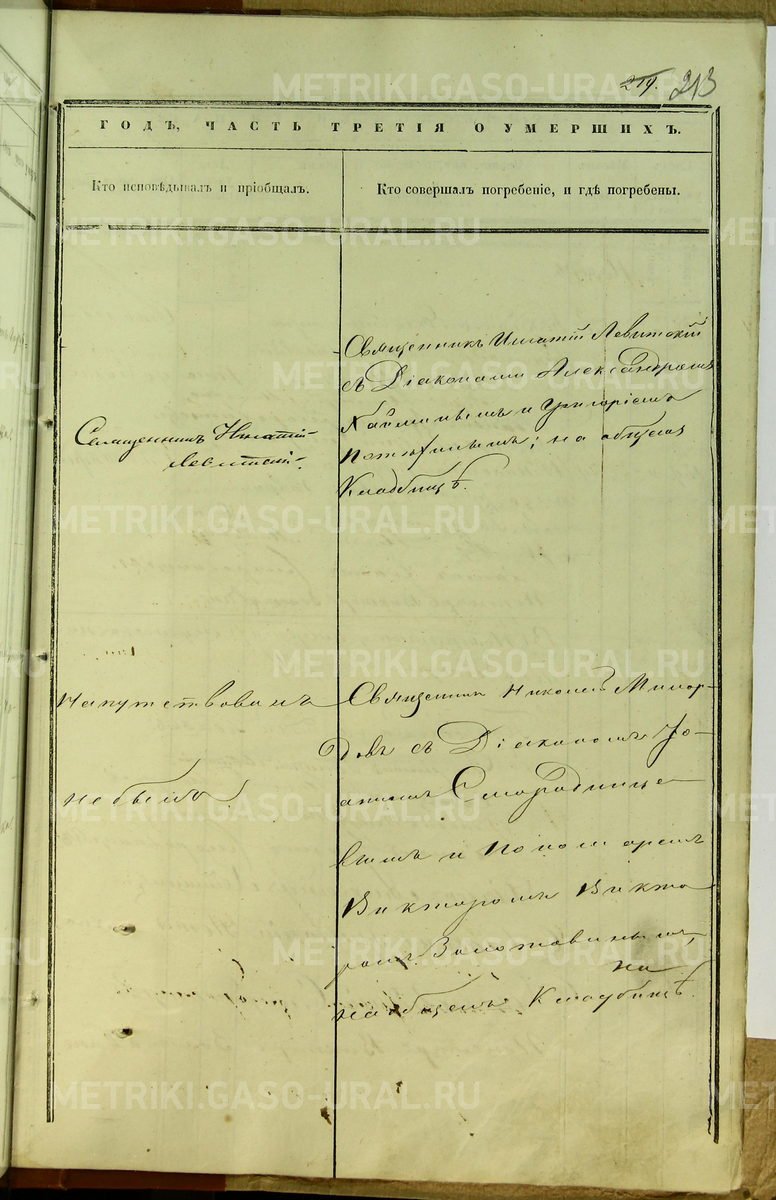 219. 213
ГОДЪ, ЧАСТЬ ТРЕТІЯ О УМЕРШИХЪ.
Кто исповѣдывалъ и пріобщалъ.
Кто совершалъ погребеніе, и гдѣ погребены.
Священникъ Игнатій
Левитскій.
Священникъ Игнатій Левитскій
съ Діаконами Александромъ
и Григоріемъ
на общемъ
Кладбищѣ.
Напутствованъ
не былъ.
Священникъ Николай
съ Діакономъ Іо-
анномъ Смородинце-
вымъ и Пономаремъ
Викторомъ Викто
ромъ Золотавинымъ,
на
на общемъ Кладбищѣ.
METRIKI.GASO-URAL.RU